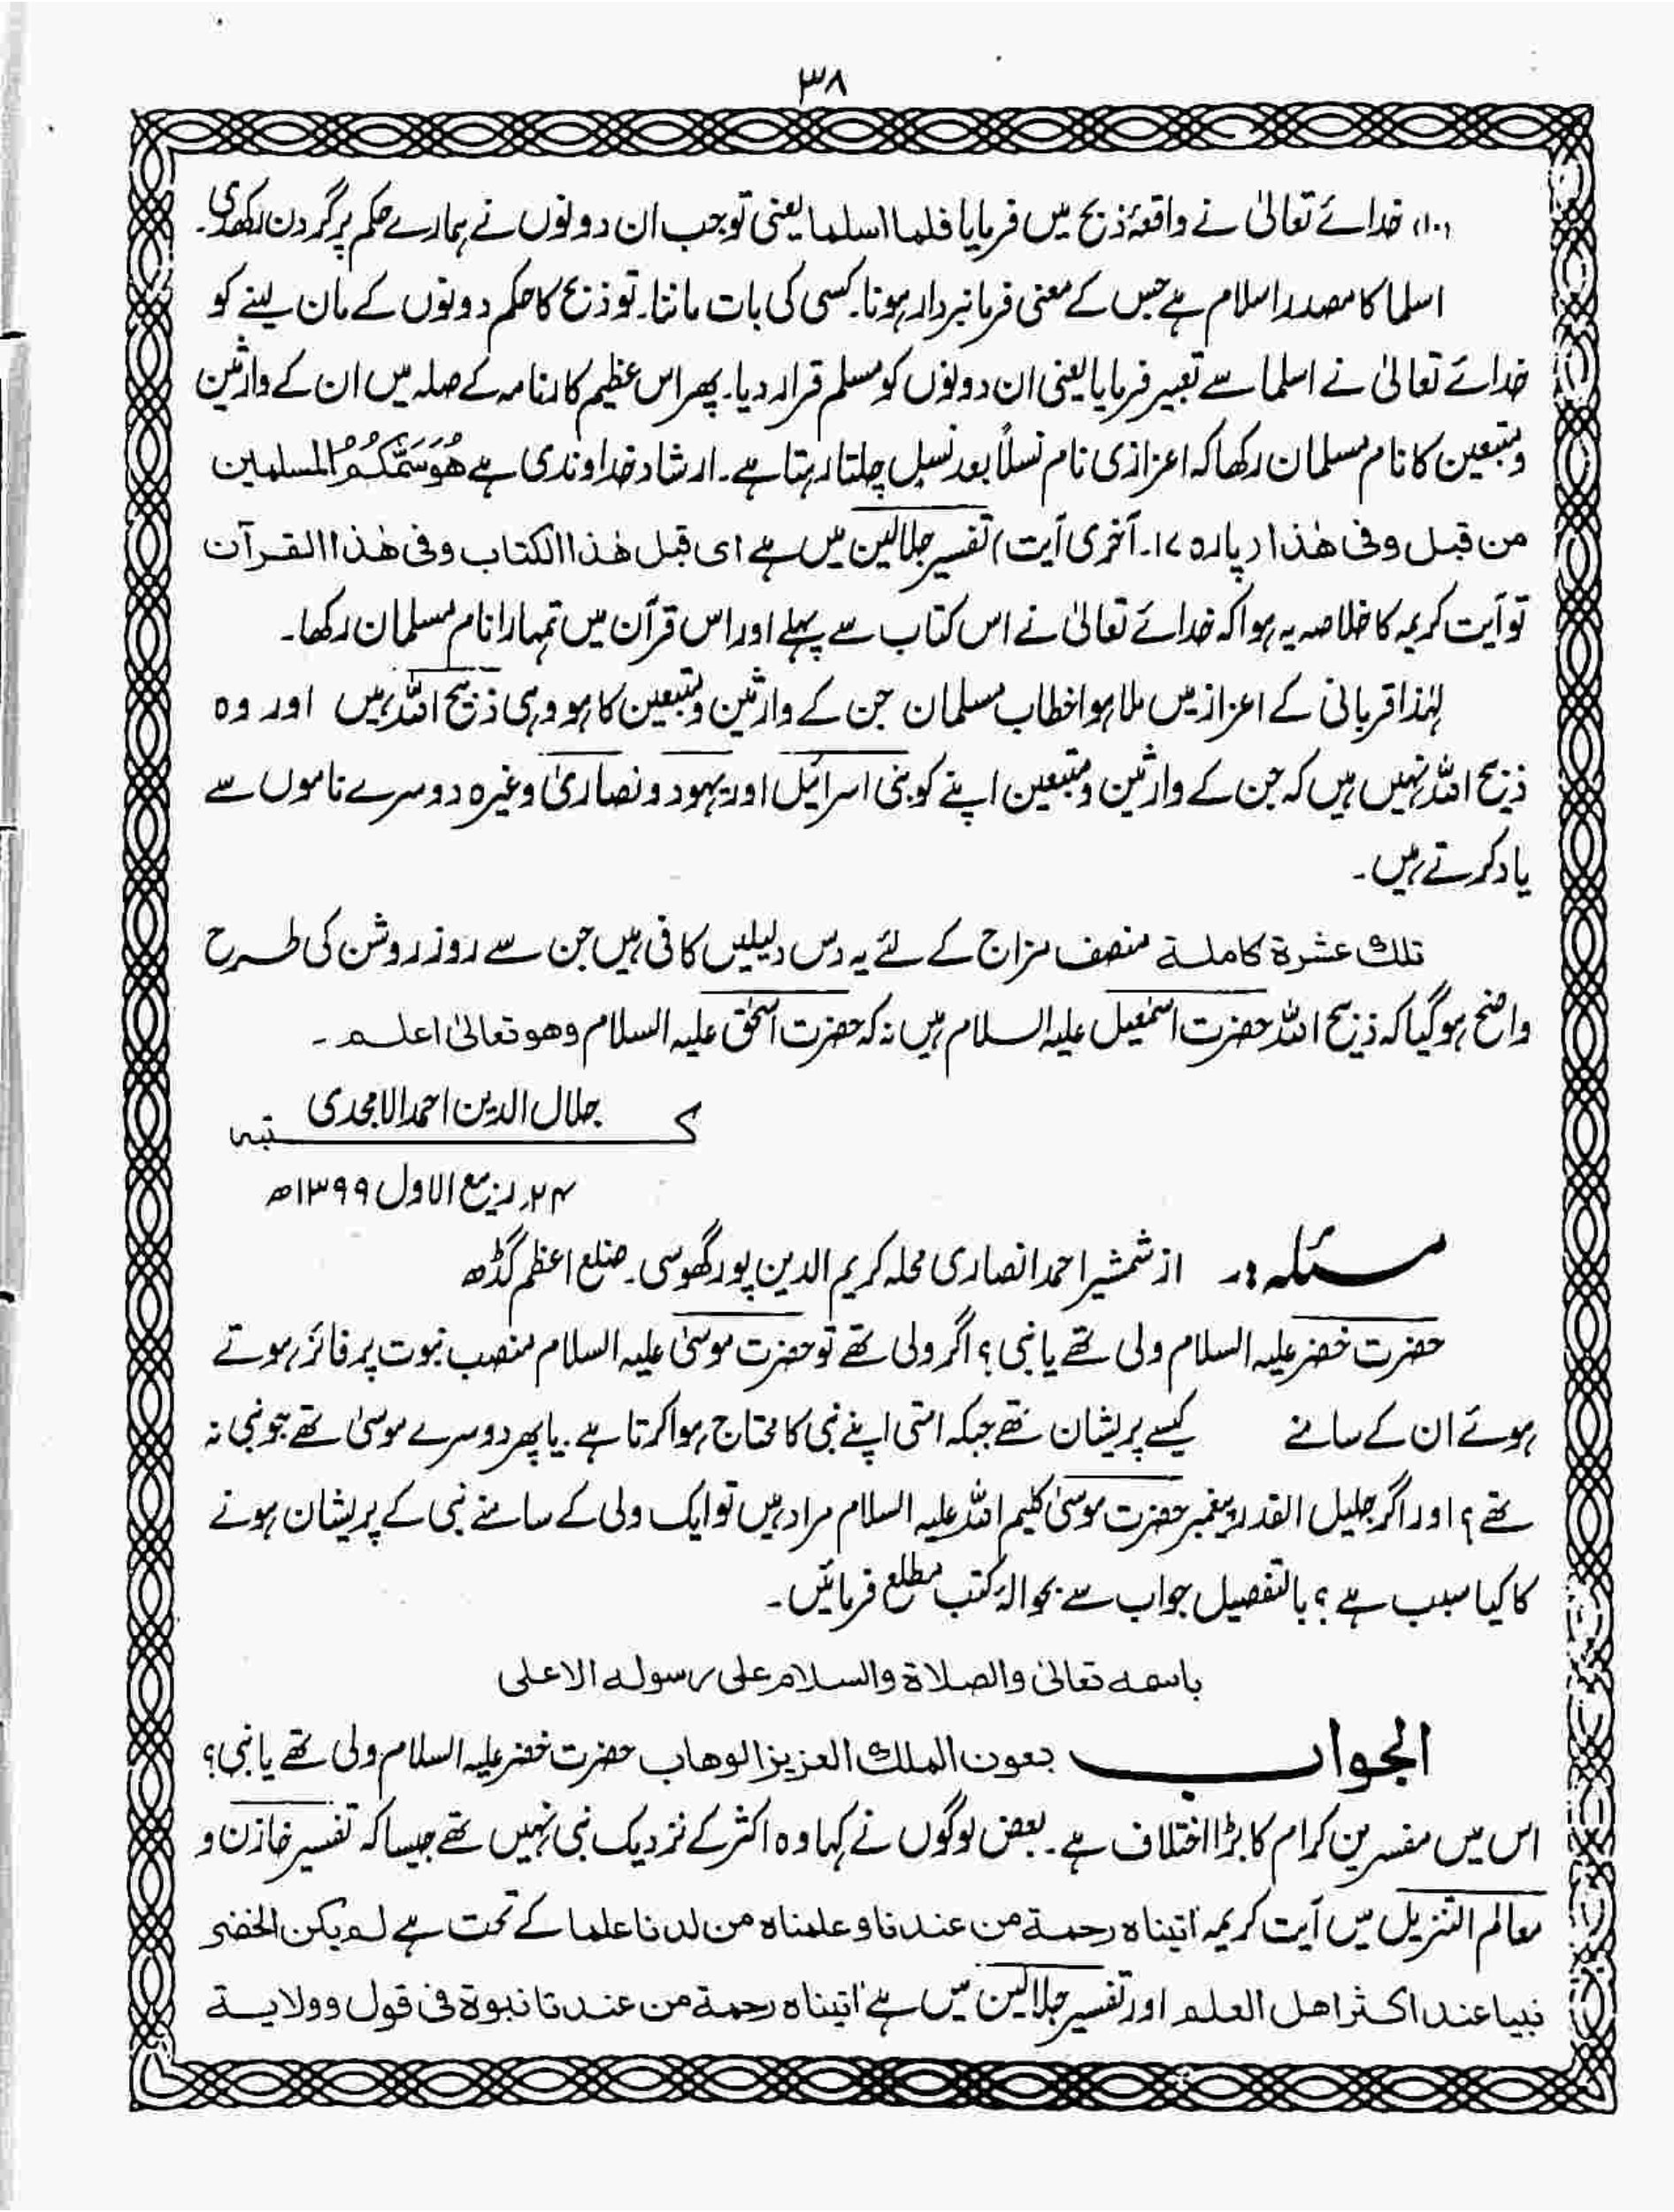 ۳۸
(۱۰) خدائے تعالیٰ نے واقعۂ ذبح میں فرمایا فلما اسلما یعنی تو جب ان دونوں نے ہمارے حکم پر گردن رکھدی۔
اسلما کا مصدر اسلام ہے جس کے معنی فرمانبردار ہونا۔ کسی کی بات ماننا۔ تو ذبح کا حکم دونوں کے مان لینے کو
خدائے تعالیٰ نے اسلما سے تعبیر فرمایا یعنی ان دونوں کو مسلم قرار دیا۔ پھر اس عظیم کارنامہ کے صلہ میں ان کے وارثین
و متبعین کا نام مسلمان رکھا کہ اعزازی نام نسلاً بعد نسل چلتا رہتا ہے۔ ارشاد خداوندی ہے هُوَ سَمّٰكُمُ المسلمين
من قبل وفی ھٰذا (پارہ ۱۷۔ آخری آیت) تفسیر جلالین میں ہے ای قبل ھٰذا الکتاب وفی ھٰذا القرآن
تو آیت کریمہ کا خلاصہ یہ ہوا کہ خدائے تعالیٰ نے اس کتاب سے پہلے اور اس قرآن میں تمہارا نام مسلمان رکھا۔
لہٰذا قربانی کے اعزاز میں ملا ہوا خطاب مسلمان جن کے وارثین و متبعین کا ہو وہی ذبیح اللہ ہیں اور وہ
ذبیح اللہ نہیں ہیں کہ جن کے وارثین و متبعین اپنے کو بنی اسرائیل اور یہود و نصاریٰ وغیرہ دوسرے ناموں سے
یاد کرتے ہیں۔
تلك عشرة كاملة منصف مزاج کے لئے یہ دس دلیلیں کافی ہیں جن سے روز روشن کی طرح
واضح ہو گیا کہ ذبیح اللہ حضرت اسمٰعیل علیہ السلام ہیں نہ کہ حضرت اسحٰق علیہ السلام وھو تعالیٰ اعلم۔
کتبہ جلال الدین احمد الامجدی
۲۴؍ ربیع الاول ۱۳۹۹ھ
مسئلہ:۔ از شمشیر احمد انصاری محلہ کریم الدین پور گھوسی۔ ضلع اعظم گڈھ
حضرت خضر علیہ السلام ولی تھے یا نبی؟ اگر ولی تھے تو حضرت موسیٰ علیہ السلام منصب نبوت پر فائز ہوتے
ہوئے ان کے سامنے کیسے پریشان تھے جبکہ امتی اپنے نبی کا محتاج ہوا کرتا ہے۔ یا پھر دوسرے موسیٰ تھے جو نبی نہ
تھے؟ اور اگر جلیل القدر پیغمبر حضرت موسیٰ کلیم اللہ علیہ السلام مراد ہیں تو ایک ولی کے سامنے نبی کے پریشان ہونے
کا کیا سبب ہے؟ بالتفصیل جواب سے بحوالۂ کتب مطلع فرمائیں۔
باسمه تعالیٰ والصلاة والسلام علی رسوله الاعلی
الجواب بعون الملك العزیز الوھاب حضرت خضر علیہ السلام ولی تھے یا نبی؟
اس میں مفسرین کرام کا بڑا اختلاف ہے۔ بعض لوگوں نے کہا وہ اکثر کے نزدیک نبی نہیں تھے جیسا کہ تفسیر خازن و
معالم التنزیل میں آیت کریمہ اٰتیناه رحمة من عندنا وعلمناه من لدنا علما کے تحت ہے لم یکن الخضر
نبیا عند اکثر اھل العلم اور تفسیر جلالین میں ہے اٰتیناه رحمة من عندنا نبوة فی قول وولایة